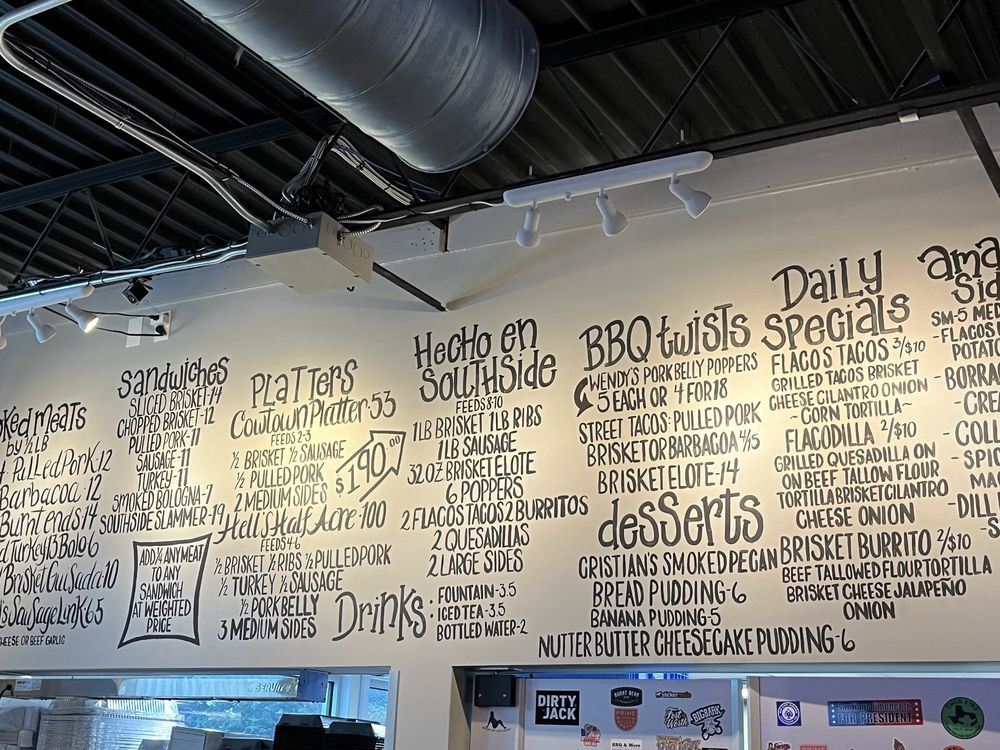 oked meats
by 1/2 LB
Pulled Pork 12
Barbacoa - 12
Burnt ends 14
d Turkey 13 Bolo 6
Brisket Guisada - 10
Sausage Link 6.5
CHEESE OR BEEF GARLIC
Sandwiches
SLICED BRISKET - 14
CHOPPED BRISKET - 12
PULLED PORK - 11
SAUSAGE - 11
TURKEY - 11
SMOKED BOLOGNA - 7
SOUTHSIDE SLAMMER - 19
ADD 1/4 ANY MEAT
TO ANY
SANDWICH
AT WEIGHTED
PRICE
PLATTERS
Cowtown Platter - 53
FEEDS 2-3
1/2 BRISKET 1/2 SAUSAGE
1/2 PULLED PORK
2 MEDIUM SIDES
Hell's Half Acre - 100
FEEDS 4-6
1/2 BRISKET 1/2 RIBS 1/2 PULLED PORK
1/2 TURKEY 1/2 SAUSAGE
1/2 PORK BELLY
3 MEDIUM SIDES
$190.00
HecHo en
SOUTHSide
FEEDS 8-10
1 LB BRISKET 1 LB RIBS
1 LB SAUSAGE
32 OZ. BRISKET ELOTE
6 POPPERS
2 FLACOS TACOS 2 BURRITOS
2 QUESADILLAS
2 LARGE SIDES
Drinks:
FOUNTAIN - 3.5
ICED TEA - 3.5
BOTTLED WATER - 2
BBQ twists
WENDY'S PORK BELLY POPPERS
5 EACH OR 4 FOR 18
STREET TACOS: PULLED PORK
BRISKET OR BARBACOA 4/15
BRISKET ELOTE - 14
desserts
CRISTIAN'S SMOKED PECAN
BREAD PUDDING - 6
BANANA PUDDING - 5
NUTTER BUTTER CHEESECAKE PUDDING - 6
DaiLy
SPecials
FLACOS TACOS 3/$10
GRILLED TACOS BRISKET
CHEESE CILANTRO ONION
- CORN TORTILLA -
FLACODILLA 2/$10
GRILLED QUESADILLA ON
ON BEEF TALLOW FLOUR
TORTILLA BRISKET CILANTRO
CHEESE ONION
BRISKET BURRITO 2/$10
BEEF TALLOWED FLOUR TORTILLA
BRISKET CHEESE JALAPEÑO
ONION
ama
Sid
SM - 5 MED
- FLACOS
POTATO
- BORRAC
- CRE
- COLL
- SPIC
MA
- DILL
DIRTY
JACK
BURNT BEAN
PRIME
BBQ & More
stickermule
Fort
Worth
BIG BARK
FOR PRESIDENT